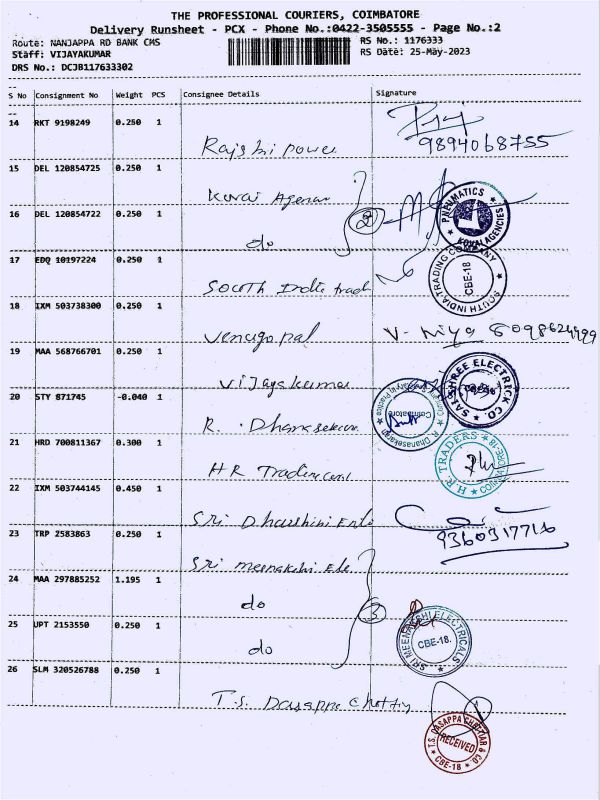 THE PROFESSIONAL COURIERS, COIMBATORE
Delivery Runsheet - PCX - Phone No.:0422-3505555 - Page No.:2
Route: NANJAPPA RD BANK CMS
RS No.: 1176333
Staff: VIJAYAKUMAR
RS Date: 25-May-2023
DRS No.: DCJB117633302
S No Consignment No Weight PCS Consignee Details Signature
14 RKT 9198249 0.250 1
Rajshi power
9894068755
15 DEL 120854725 0.250 1
Kovai Agencies
PNEUMATICS
KOVAI AGENCIES
16 DEL 120854722 0.250 1
2
do
17 EDQ 10197224 0.250 1
South India trad
SOUTH INDIA TRADING COMPANY
CBE-18
18 IXM 503738300 0.250 1
Venugopal
V- 8098624999
19 MAA 568766701 0.250 1
Vijayakumar
SAI SHREE ELECTRICK CO
20 STY 871745 -0.040 1
R. Dhanasekaran
R. Dhanasekaran
Coimbatore
21 HRD 700811367 0.300 1
HR Trading
H.R. TRADERS
COIMBATORE-18
22 IXM 503744145 0.450 1
Sri Dharshini Ente
9360317716
23 TRP 2583863 0.250 1
Sri meenakshi Ele
24 MAA 297885252 1.195 1
do
3
25 UPT 2153550 0.250 1
do
SRI MEENAKSHI ELECTRICALS
CBE-18.
26 SLM 320526788 0.250 1
T.S. Dasappa Chettiy
T.S. DASAPPA CHETTIAR & CO
RECEIVED
CBE-18